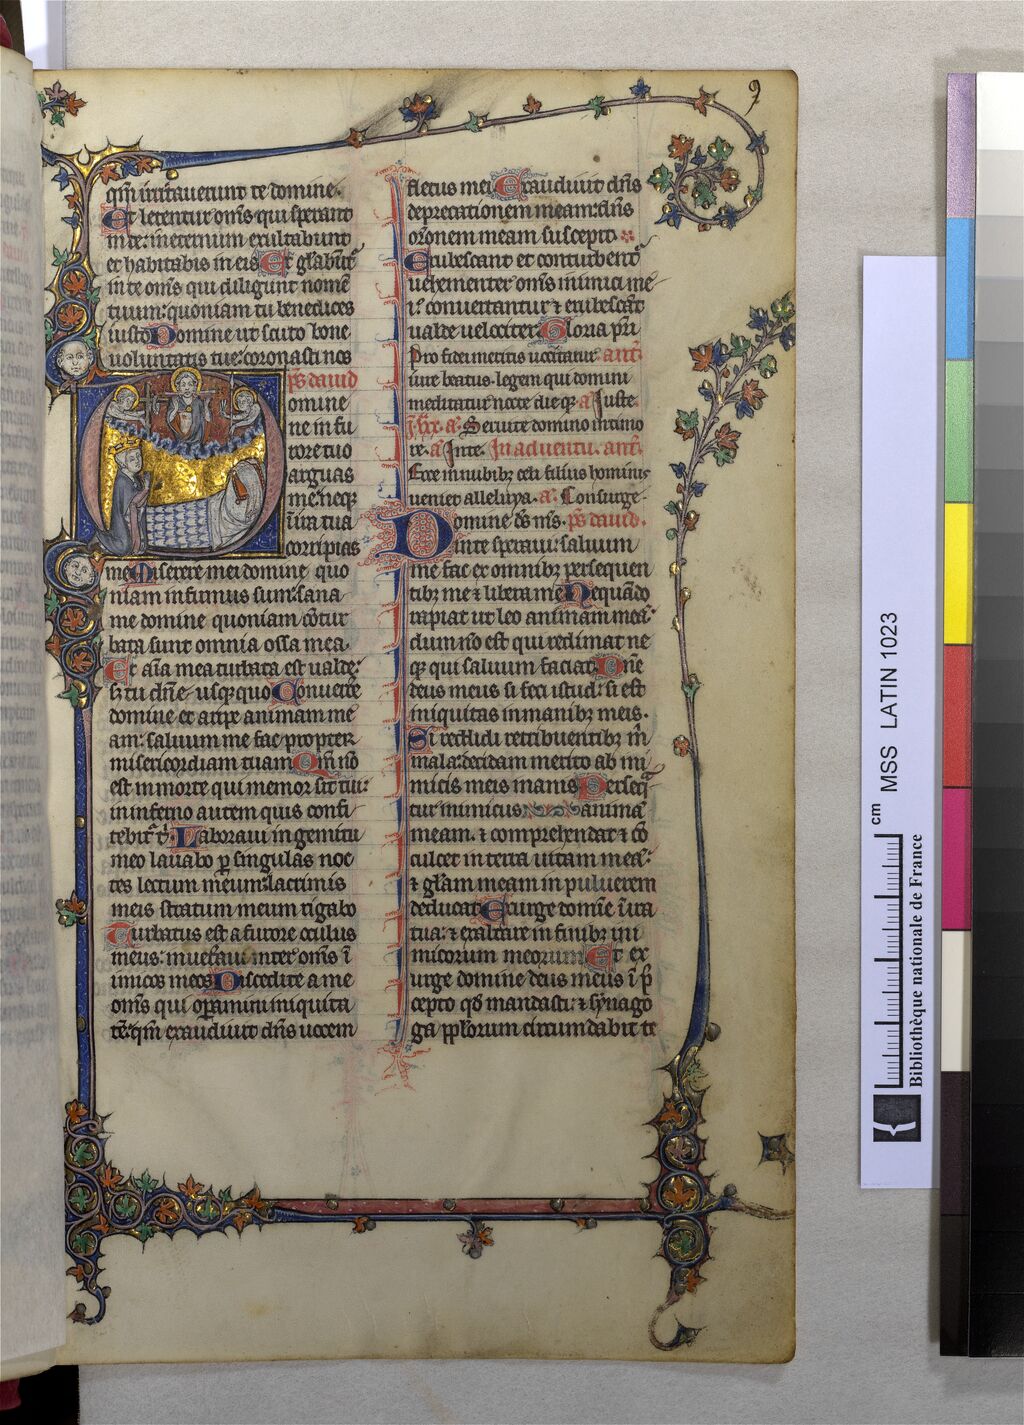 9
qm̃ irritauerunt te domine.
Et letentur om̃s qui sperant
in te: in eternum exultabunt
et habitabis in eis Et gl̃abũtᷣ
in te om̃s qui diligunt nomẽ
tuum: quoniam tu benedices
iusto Domine ut scuto bone
voluntatis tue: coronasti nos
p̃s dauid
Domine
ne in fu
rore tuo
arguas
me: neqꝫ
ĩ ira tua
corripias
me Miserere mei domine quo
niam infirmus sum: sana
me domine quoniam cõtur
bata sunt omnia ossa mea.
Et aĩa mea turbata est ualde:
sꝫ tu dñe usqꝫ quo Conuerte
domine et eripe animam me
am: saluum me fac propter
misericordiam tuam Qm̃ nõ
est in morte qui memor sit tui:
in inferno autem quis confi
tebitᷣ t̃ Laboraui in gemitu
meo lauabo ꝑ singulas noc
tes lectum meum: lacrimis
meis stratum meum rigabo
Turbatus est a furore oculus
meus: inueteraui inter om̃s ĩ
imicos meos Discedite a me
om̃s qui oꝑamini iniquita
tẽ: qm̃ exaudiuit dñs uocem
fletus mei Exaudiuit dñs
deprecationem meam: dñs
or̃onem meam suscepit
Erubescant et conturbentᷣ
uehementer om̃s inimici me
i: conuertantur ⁊ erubescãt
ualde uelociter Gloria pr̃i
Pro fidei meritis uocitatur añt
iure beatus. legem qui domini
meditatur nocte die qꝫ a Iuste.
Seruite domino in timo
re. a Inte. In aduentu. añt.
Ecce in nubibꝫ celi filius hominis
ueniet alleluya. a. Consurge.
Domine d̃s m̃s. p̃s dauid.
in te speraui: saluum
me fac ex omnibꝫ persequen
tibꝫ me ⁊ libera me Nequãdo
rapiat ut leo animam meã:
dum nõ est qui redimat ne
qꝫ qui saluum faciat Dñe
deus meus si feci istud: si est
iniquitas in manibꝫ meis.
Si reddidi retribuentibꝫ m̃
mala: decidam merito ab ini
micis meis inanis Perseqᷣ
tur inimicus animã
meam. ⁊ comprehendat ⁊ cõ
culcet in terra uitam meã:
⁊ gl̃am meam in puluerem
deducat Exurge domĩe ĩ ira
tua: ⁊ exaltare in finibꝫ ini
micorum meorum Et ex
urge domine deus meus ĩ p̃
cepto qđ mandasti: ⁊ synago
ga pp̃lorum circumdabit te
MSS LATIN 1023
cm
Bibliothèque nationale de France